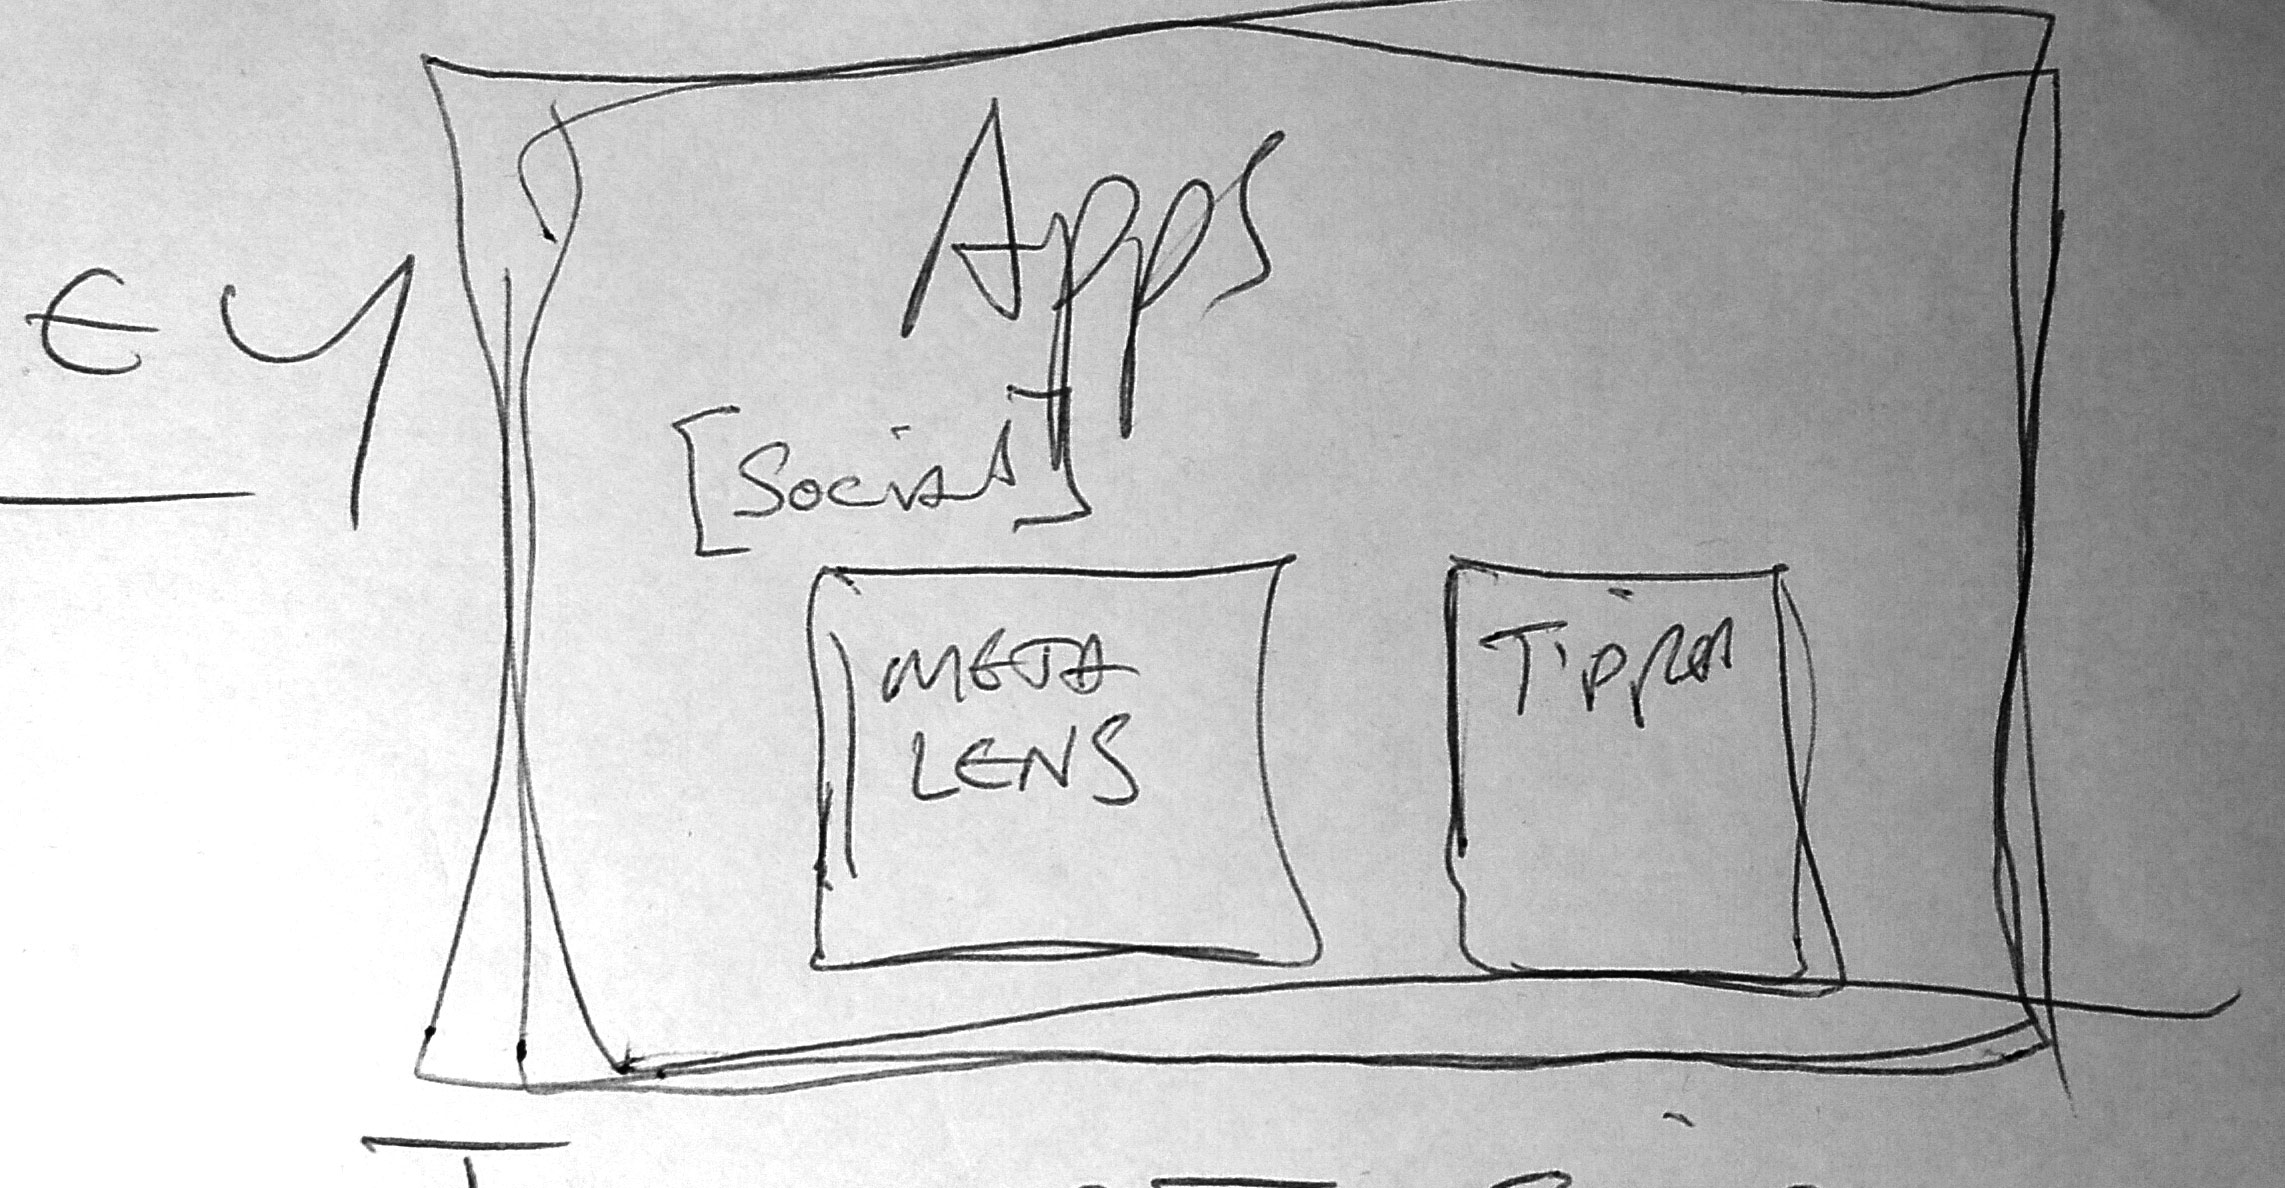 Apps
EY
[Social]
META
LENS
Tipper